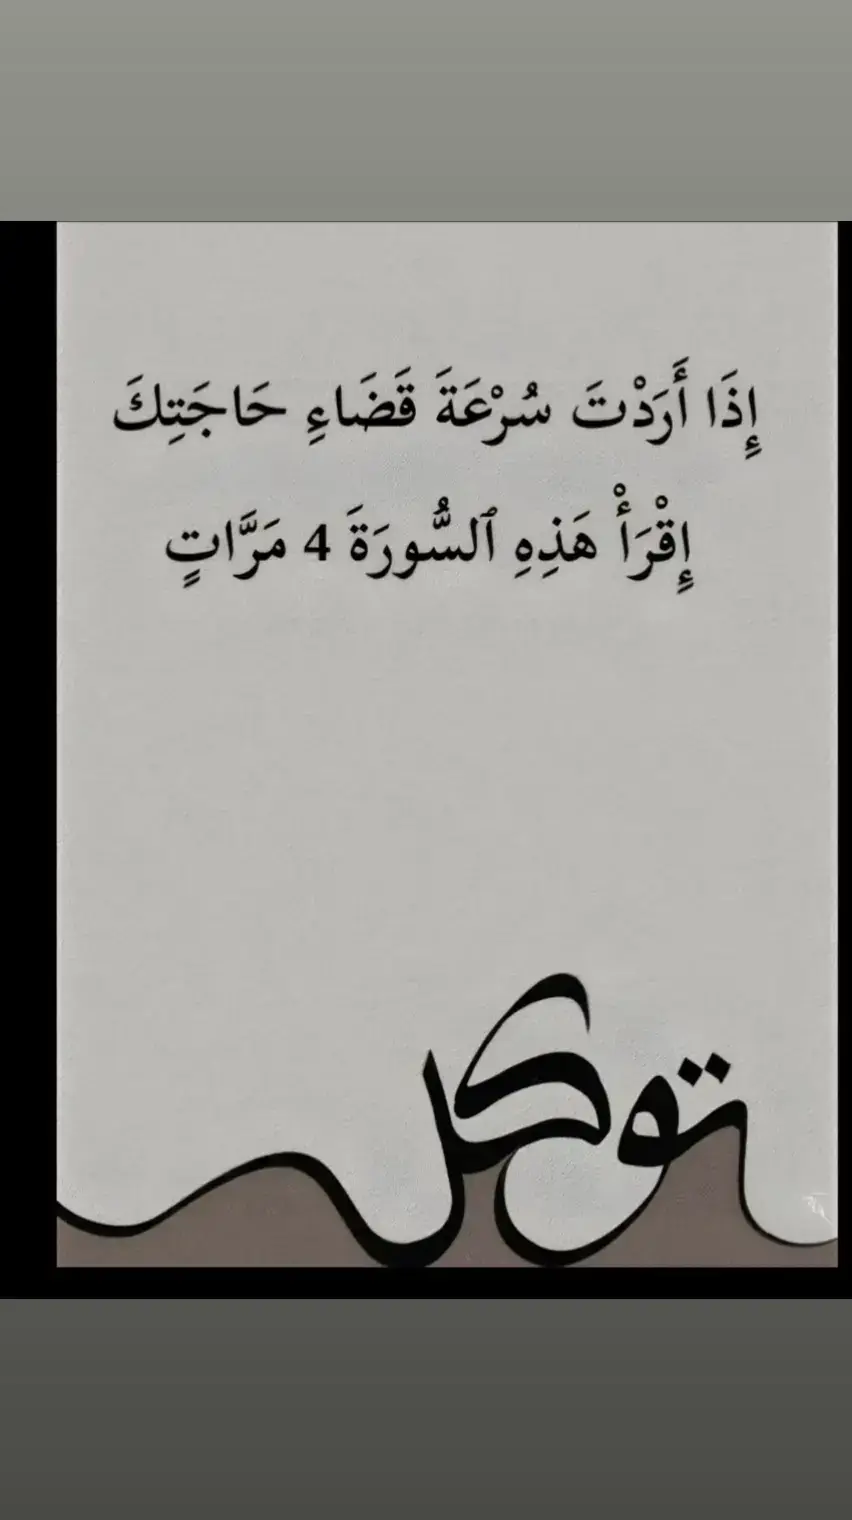 إِذَا أَرَدْتَ سُرْعَةَ قَضَاءِ حَاجَتِكَ
إِقْرَأْ هَذِهِ ٱلسُّورَةَ 4 مَرَّاتٍ
توكل